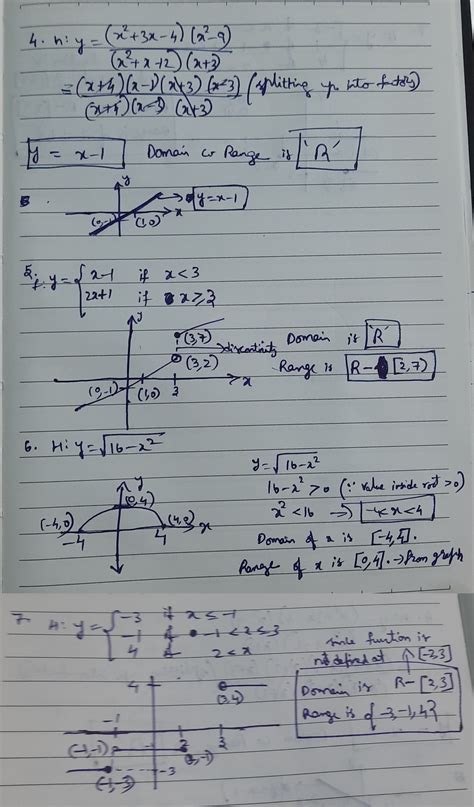 4. h: y = (x²+3x-4) (x²-9)
(x²+x+2) (x+3)
= (x+4)(x-1)(x+3)(x-3) (splitting up into factors)
(x+4)(x-3) (x+3)
y = x-1 Domain & Range is 'R'
y
y=x-1
(0,-1) (1,0) x
5. f: y = { x-1 if x<3
2x+1 if x≥3
y
(3,7)
discontinuity
(3,2)
Domain is 'R'
Range is R- [2,7)
(0,-1) (1,0) 3 x
6. H: y = √16-x²
y
(0,4)
(-4,0) (4,0) x
-4 4
y = √16-x²
16-x² > 0 (∵ value inside root >0)
x² < 16 → -4<x<4
Domain of x is [-4,4].
Range of x is [0,4]. → from graph
7. H: y = { -3 if x ≤ -1
-1 if -1<x≤3
4 if 2<x
since function is
not defined at [-2,3]
Domain is R-[2,3]
Range is {-3,-1,4}
4
(3,4)
-1 2 3
(-1,-1) (2,-1)
(-1,-3) -3